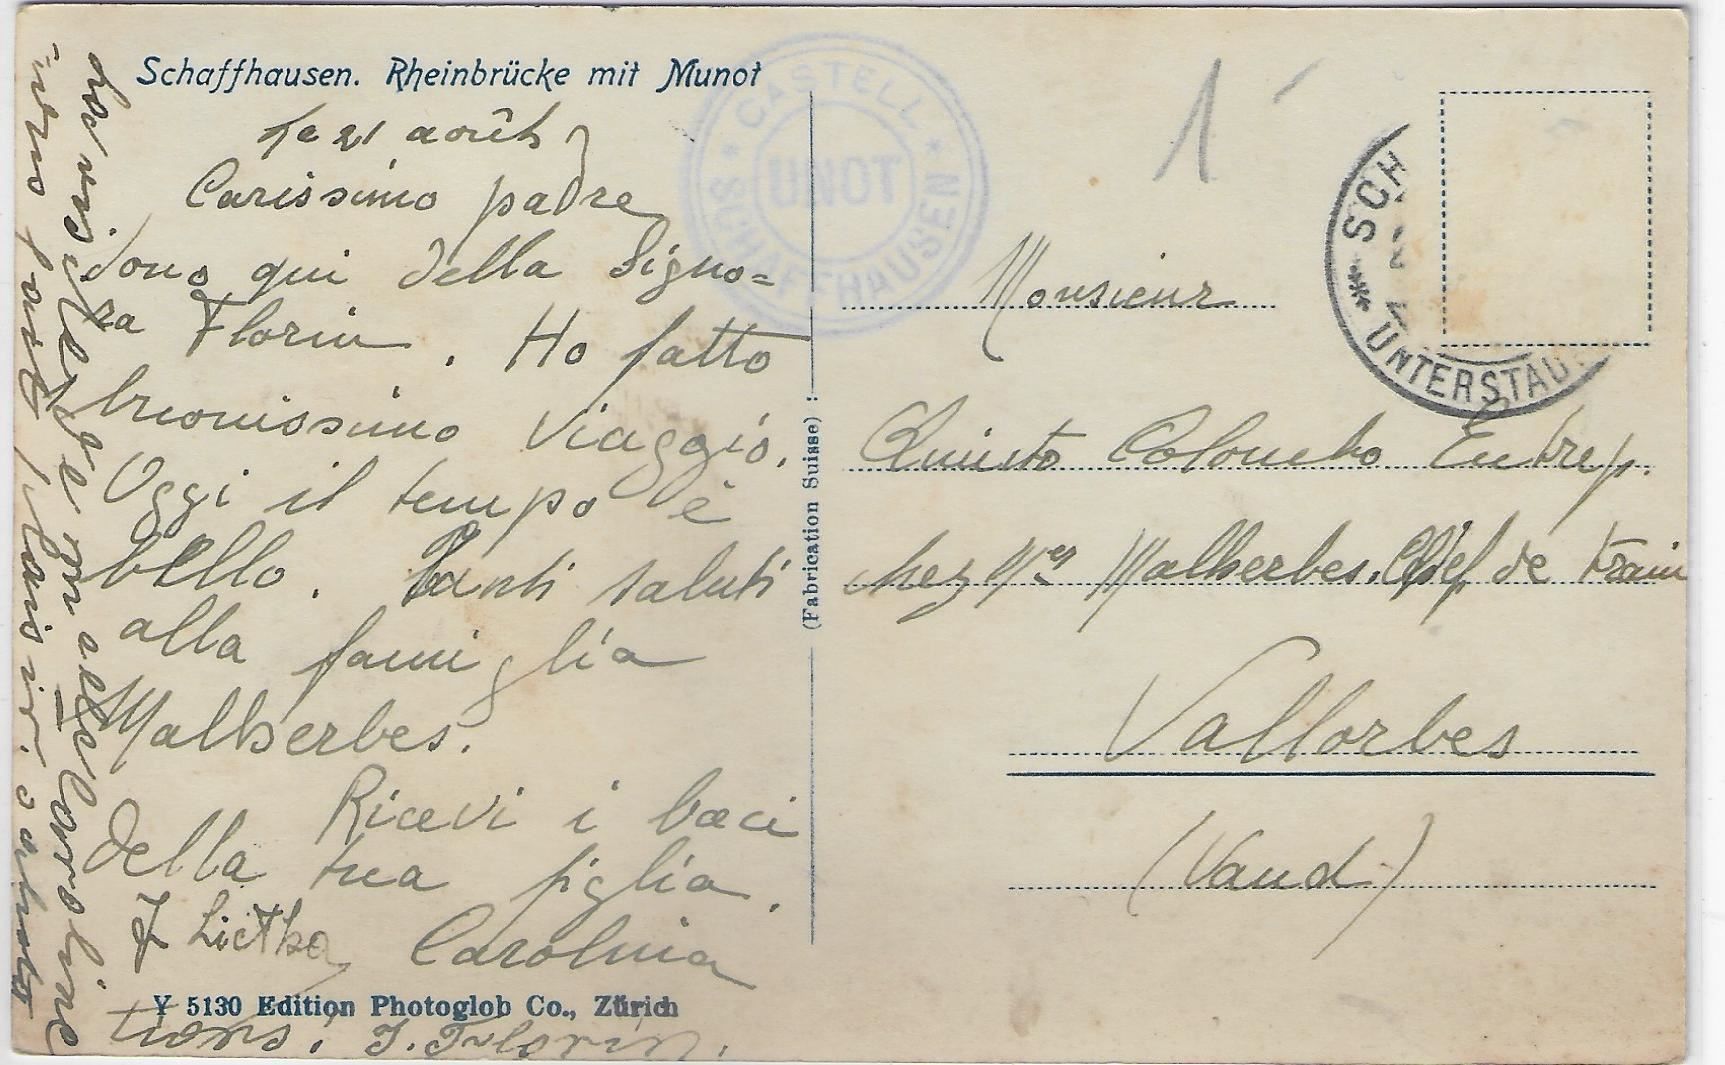 Schaffhausen. Rheinbrücke mit Munot
le 21 août
Carissimo padre
Sono qui della Signo=
ra Florin. Ho fatto
buonissimo viaggio.
Oggi il tempo è
bello. Tanti saluti
alla famiglia
Malherbes.
Ricevi i baci
della tua figlia.
Carolina
Y 5130 Edition Photoglob Co., Zürich
tions. J. Florin.
(Fabrication Suisse)
* CASTELL *
UNOT
SCHAFFHAUSEN
1
SCH
UNTERSTAD
Monsieur
Quinto Colombo Entrep.
chez Mr Malherbes. Chef de train
Vallorbes
(Vaud)